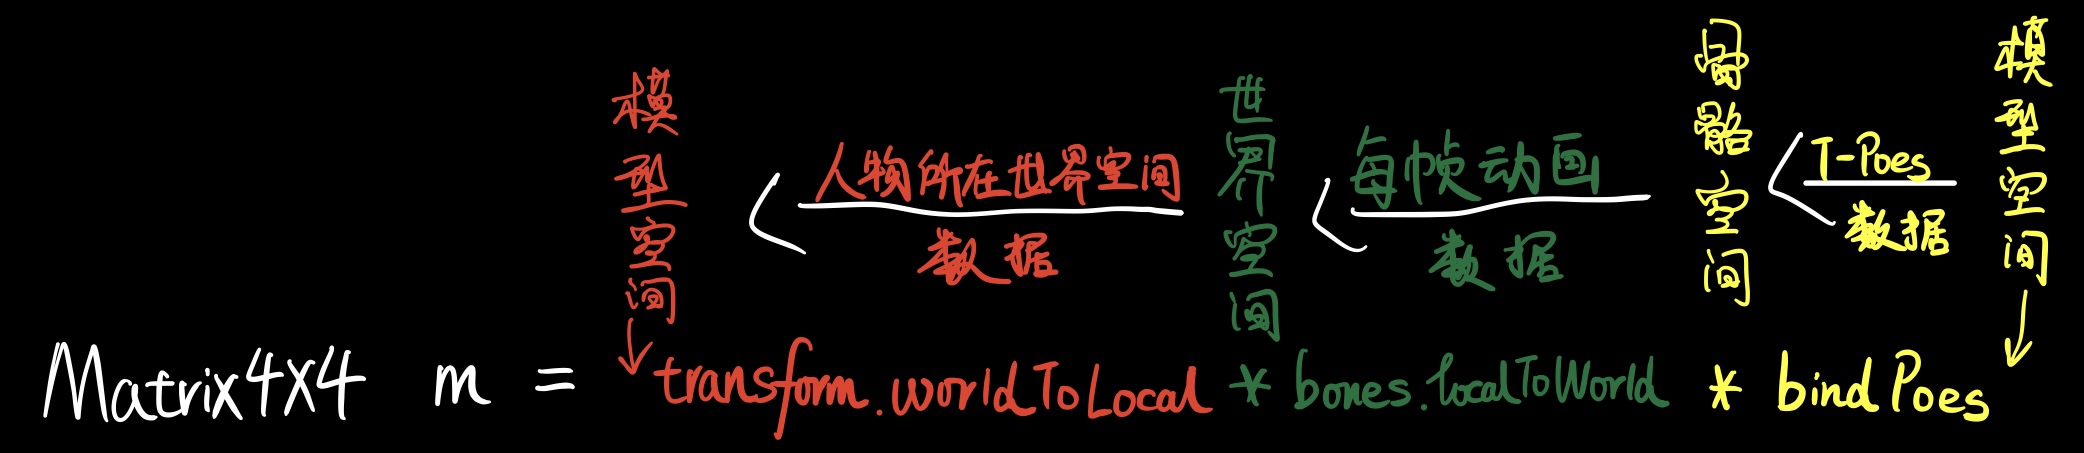 模型空间
人物所在世界空间
数据
世界空间
每帧动画
数据
骨骼空间
T-Poes
数据
模型空间
Matrix4X4 m = transform.worldToLocal * bones.localToWorld * bindPoes